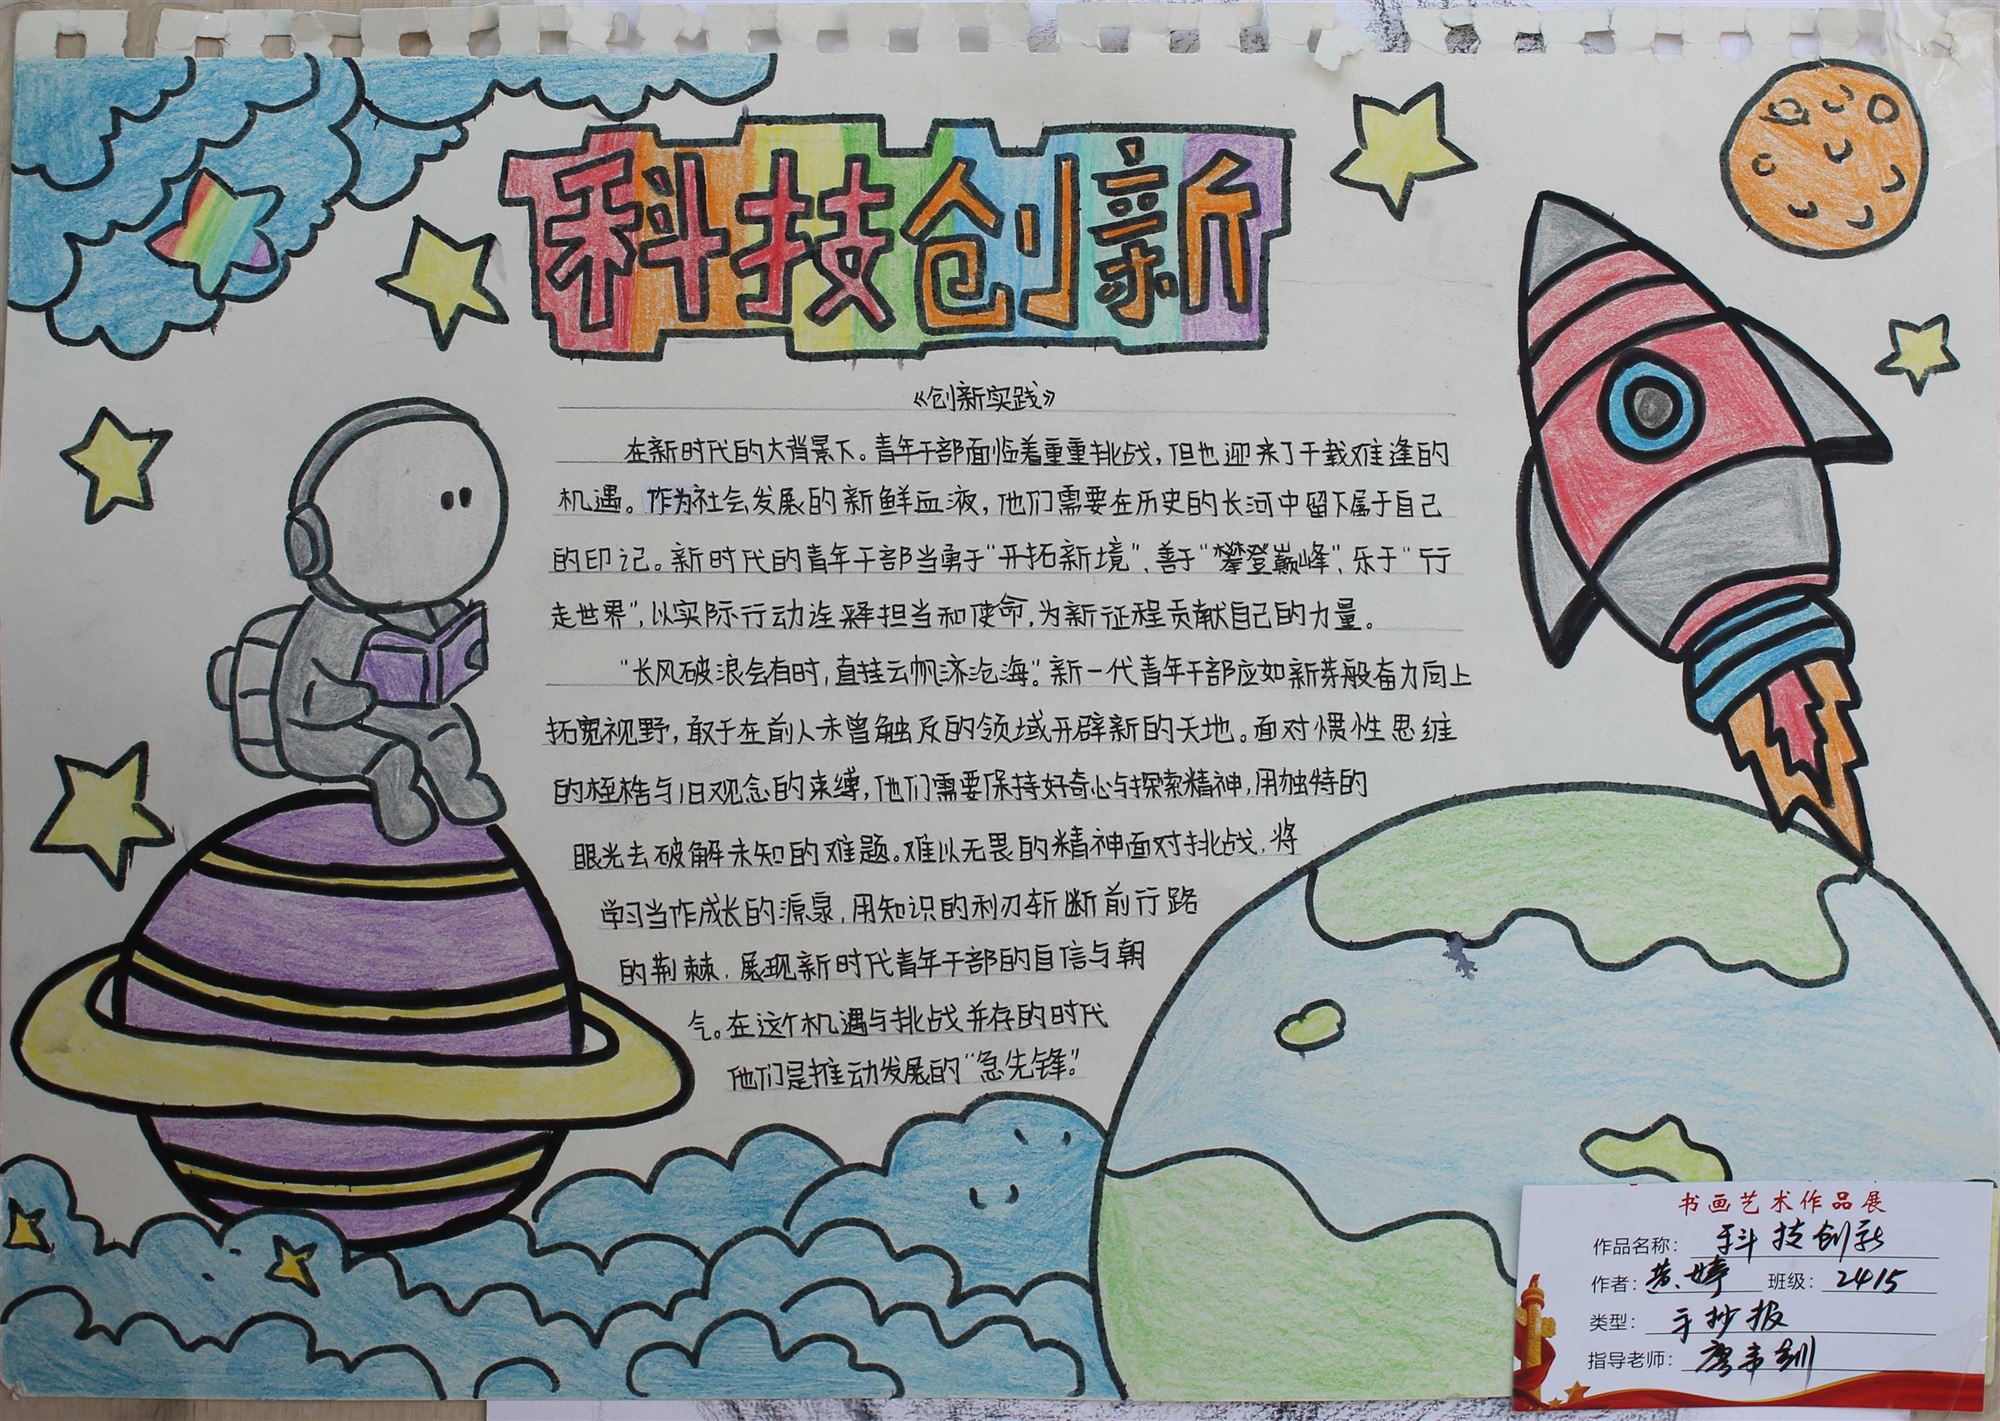 科技创新
《创新实践》
在新时代的大背景下。青年干部面临着重重挑战,但也迎来了千载难逢的
机遇。作为社会发展的新鲜血液,他们需要在历史的长河中留下属于自己
的印记。新时代的青年干部当勇于“开拓新境”、善于“攀登巅峰”、乐于“行
走世界”,以实际行动诠释担当和使命,为新征程贡献自己的力量。
“长风破浪会有时,直挂云帆济沧海。”新一代青年干部应如新芽般奋力向上
拓宽视野,敢于在前人未曾触及的领域开辟新的天地。面对惯性思维
的桎梏与旧观念的束缚,他们需要保持好奇心与探索精神,用独特的
眼光去破解未知的难题。难以无畏的精神面对挑战,将
学习当作成长的源泉,用知识的利刃斩断前行路
的荆棘,展现新时代青年干部的自信与朝
气。在这个机遇与挑战并存的时代
他们是推动发展的“急先锋”。
书画艺术作品展
作品名称: 科技创新
作者: 黄婷 班级: 2415
类型: 手抄报
指导老师: 廖